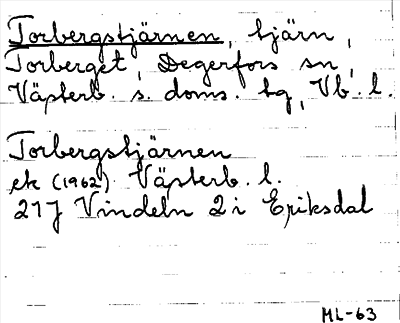 Torbergstjärnen, tjärn,
Torberget, Degerfors sn,
Västerb. s. doms. tg, Vb. l.
Torbergstjärnen
ek (1962) Västerb. l.
21J Vindeln 2 i Eriksdal
ML-63